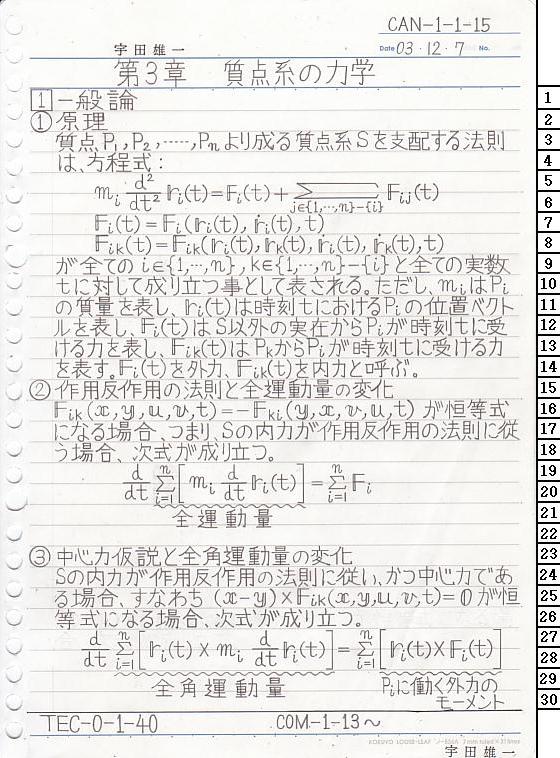 CAN-1-1-15
宇田雄一
Date 03・12・7 No.
第3章 質点系の力学
1 一般論
① 原理
質点P₁,P₂,-----,Pₙより成る質点系Sを支配する法則
は、方程式:
mᵢ d²/dt² 𝕣ᵢ(t)=𝔽ᵢ(t)+∑_{j∈{1,…,n}-{i}} 𝔽ᵢⱼ(t)
𝔽ᵢ(t)=𝔽ᵢ(𝕣ᵢ(t),ṙᵢ(t),t)
𝔽ᵢₖ(t)=𝔽ᵢₖ(𝕣ᵢ(t),𝕣ₖ(t),ṙᵢ(t),ṙₖ(t),t)
が全ての i∈{1,…,n},k∈{1,…,n}-{i}と全ての実数
tに対して成り立つ事として表される。ただし、mᵢはPᵢ
の質量を表し、𝕣ᵢ(t)は時刻tにおけるPᵢの位置ベクト
ルを表し、𝔽ᵢ(t)はS以外の実在からPᵢが時刻tに受
ける力を表し、𝔽ᵢₖ(t)はPₖからPᵢが時刻tに受ける力
を表す。𝔽ᵢ(t)を外力、𝔽ᵢₖ(t)を内力と呼ぶ。
② 作用反作用の法則と全運動量の変化
𝔽ᵢₖ(𝕩,𝕪,𝕦,𝕧,t)=-𝔽ₖᵢ(𝕪,𝕩,𝕧,𝕦,t) が恒等式
になる場合、つまり、Sの内力が作用反作用の法則に従
う場合、次式が成り立つ。
d/dt ∑_{i=1}^{n}[mᵢ d/dt 𝕣ᵢ(t)]=∑_{i=1}^{n} 𝔽ᵢ
全運動量
③ 中心力仮説と全角運動量の変化
Sの内力が作用反作用の法則に従い、かつ中心力であ
る場合、すなわち (𝕩-𝕪)×𝔽ᵢₖ(𝕩,𝕪,𝕦,𝕧,t)=𝟘が恒
等式になる場合、次式が成り立つ。
d/dt ∑_{i=1}^{n}[𝕣ᵢ(t)×mᵢ d/dt 𝕣ᵢ(t)]=∑_{i=1}^{n}[𝕣ᵢ(t)×𝔽ᵢ(t)]
全角運動量 Pᵢに働く外力の
モーメント
TEC-0-1-40 COM-1-13～
KOKUYO LOOSE-LEAF ノ-836A 7mm ruled×31 lines
宇田雄一
1
2
3
4
5
6
7
8
9
10
11
12
13
14
15
16
17
18
19
20
21
22
23
24
25
26
27
28
29
30